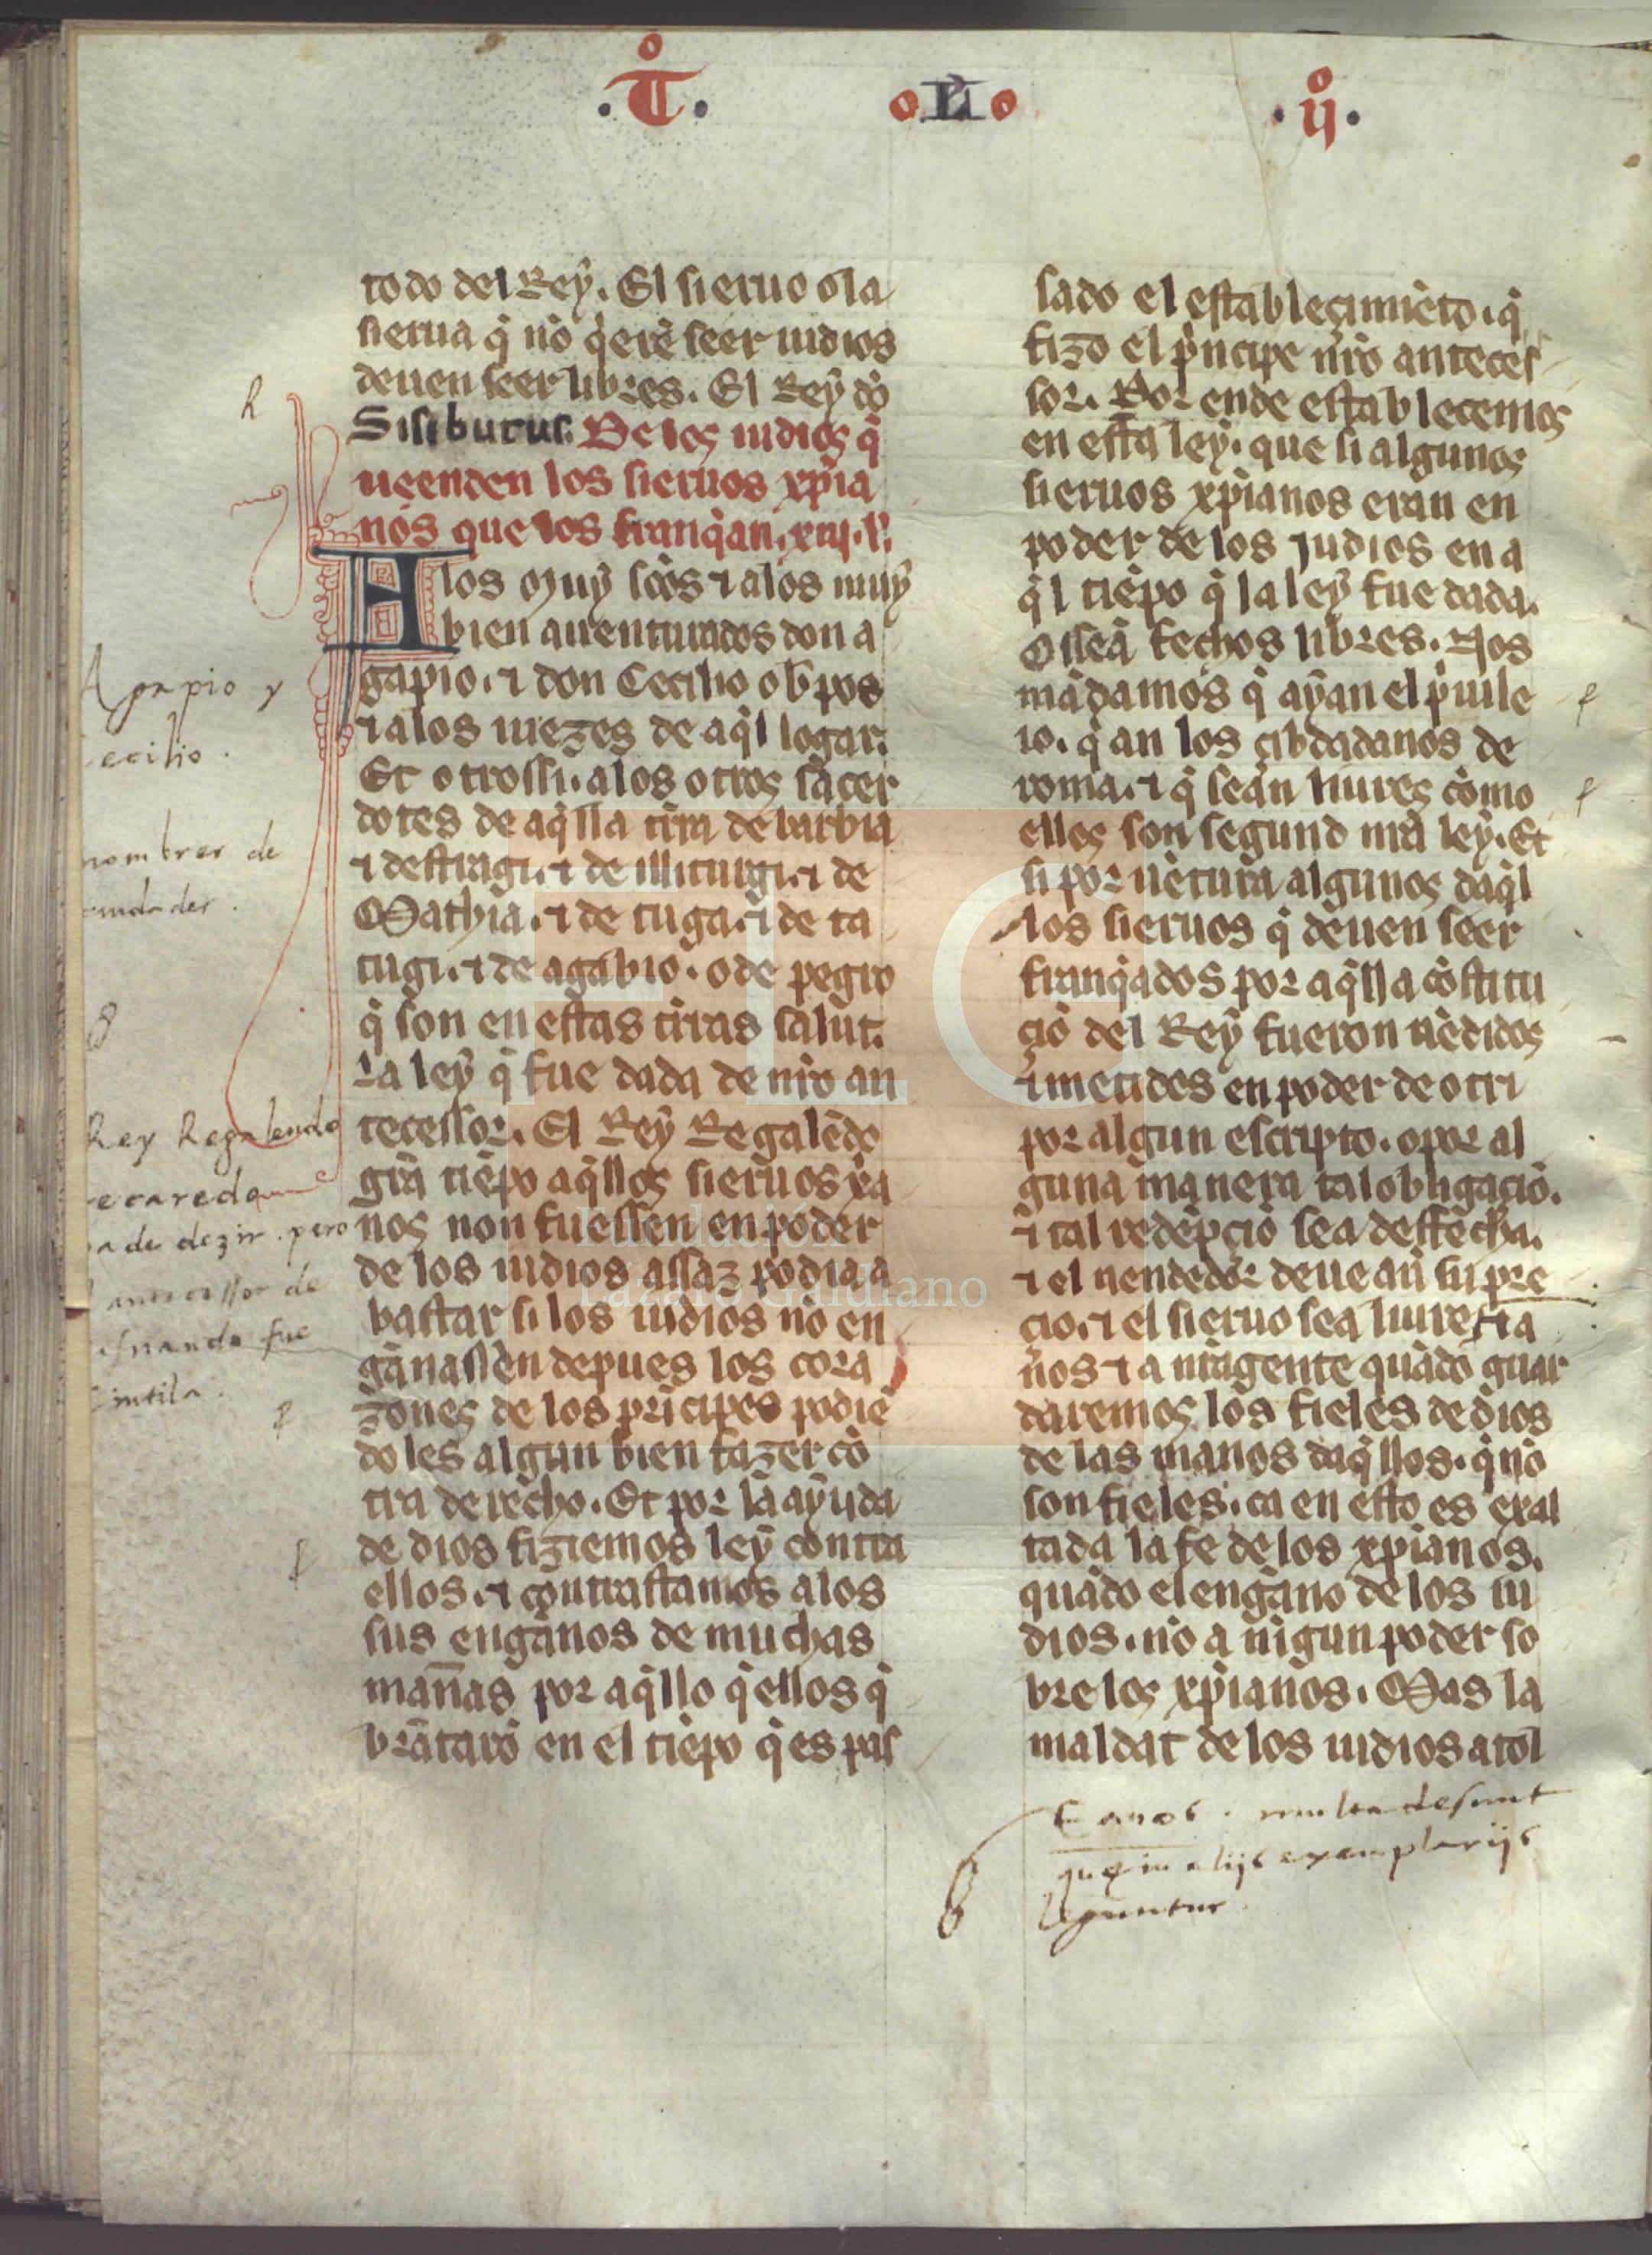 .T͛o. o.L̃I.o .ijº.
todo del Rey. El sieruo o la
sierua q̃ nõ q̃erẽ seer iudios
deuen seer libres. El Rey dõ
Sisiburus. De los iudios q̃
ueenden los sieruos xp̃ia
nos que los franq̃an. xiij. l̃.
A los muy sc̃os ⁊ alos muy
bien auenturados don a
gapio. ⁊ don Cecilio ob̃pos
⁊ alos iuezes de aq̃l logar.
Et otrossi. alos otros sacer
dotes de aq̃lla tr̃ra de barbia
⁊ destragi. ⁊ de illiturgi. ⁊ de
Mathia. ⁊ de tuga. ⁊ de ta
tugi. ⁊ de agabio. o de pegro
q̃ son en estas tr̃ras salut.
La ley q̃ fue dada de nr̃o an
tecessor. El Rey Regalẽdo
grã tiẽpo aq̃llos sieruos xã
nos non fuessen en poder
de los iudios assaz podia a
bastar si los iudios nõ en
ganassen depues los cora
zones de los prĩcipes podiẽ
do les algun bien fazer cõ
tra derecho. Et por la ayuda
de dios fiziemos ley contra
ellos. ⁊ contrastamos alos
sus enganos de muchas
man̄as por aq̃llo q̃ ellos q̃
brãtarõ en el tiẽpo q̃ es pas
sado el estableçimiẽto. q̃
fizo el p̃ncipe nr̃o anteces
sor. Por ende establecemos
en esta ley. que si algunos
sieruos xp̃ianos eran en
poder de los judios en a
q̃l tiẽpo q̃ la ley fue dada.
O sseã fechos libres. Nos
mãdamos q̃ ayan el p̃uile
io. q̃ an los çibdadanos de
roma. ⁊ q̃ sean liures como
ellos son segund nr̃a ley. Et
si por uẽtura algunos daq̃l
los sieruos q̃ deuen seer
franq̃ados por aq̃lla cõstitu
çiõ del Rey fueron uẽdidos
⁊ metides en poder de otri
por algun escripto. o por al
guna manera tal obligaciõ.
⁊ tal redẽpçiõ sea deffecha.
⁊ el uendedor deue auer su pre
çio. ⁊ el sieruo sea liure ⁊ a
nos ⁊ a nr̃a gente quãdo guar
daremos los fieles de dios
de las manos daq̃llos. q̃ nõ
son fieles. ca en esto es exal
tada la fe de los xp̃ianos.
quãdo el engano de los iu
dios. nõ a nĩgun poder so
bre los xp̃ianos. Mas la
maldat de los iudios a tol
R
Agapio y
ecilio.
nombres de
iudades.
Rey Regalendo
ecaredo
a de dezir. pero
antecessor de
isnando fue
intila.
E a nos. multa desunt
que in alijs exemplarijs
leguntur.
FLG
Lázaro Galdiano